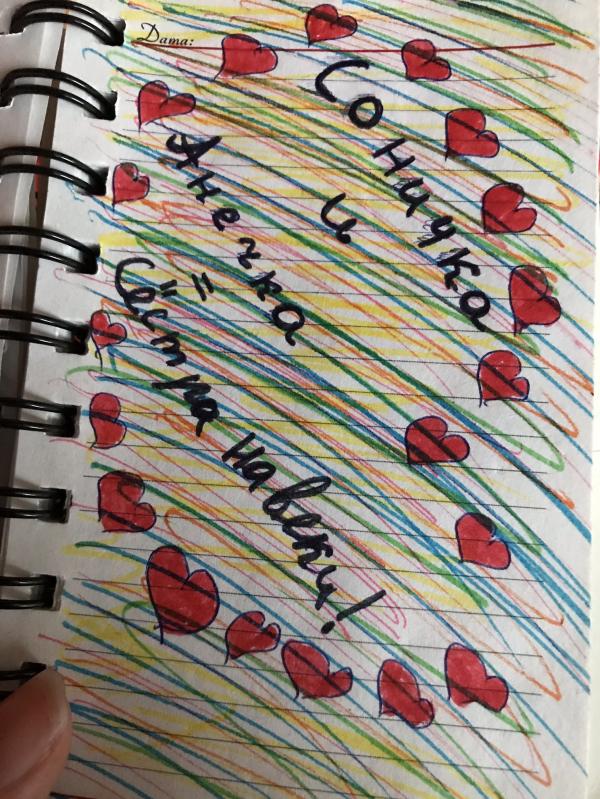 Дата:
Соничка
и
Анечка
=
Сёстра навеки!